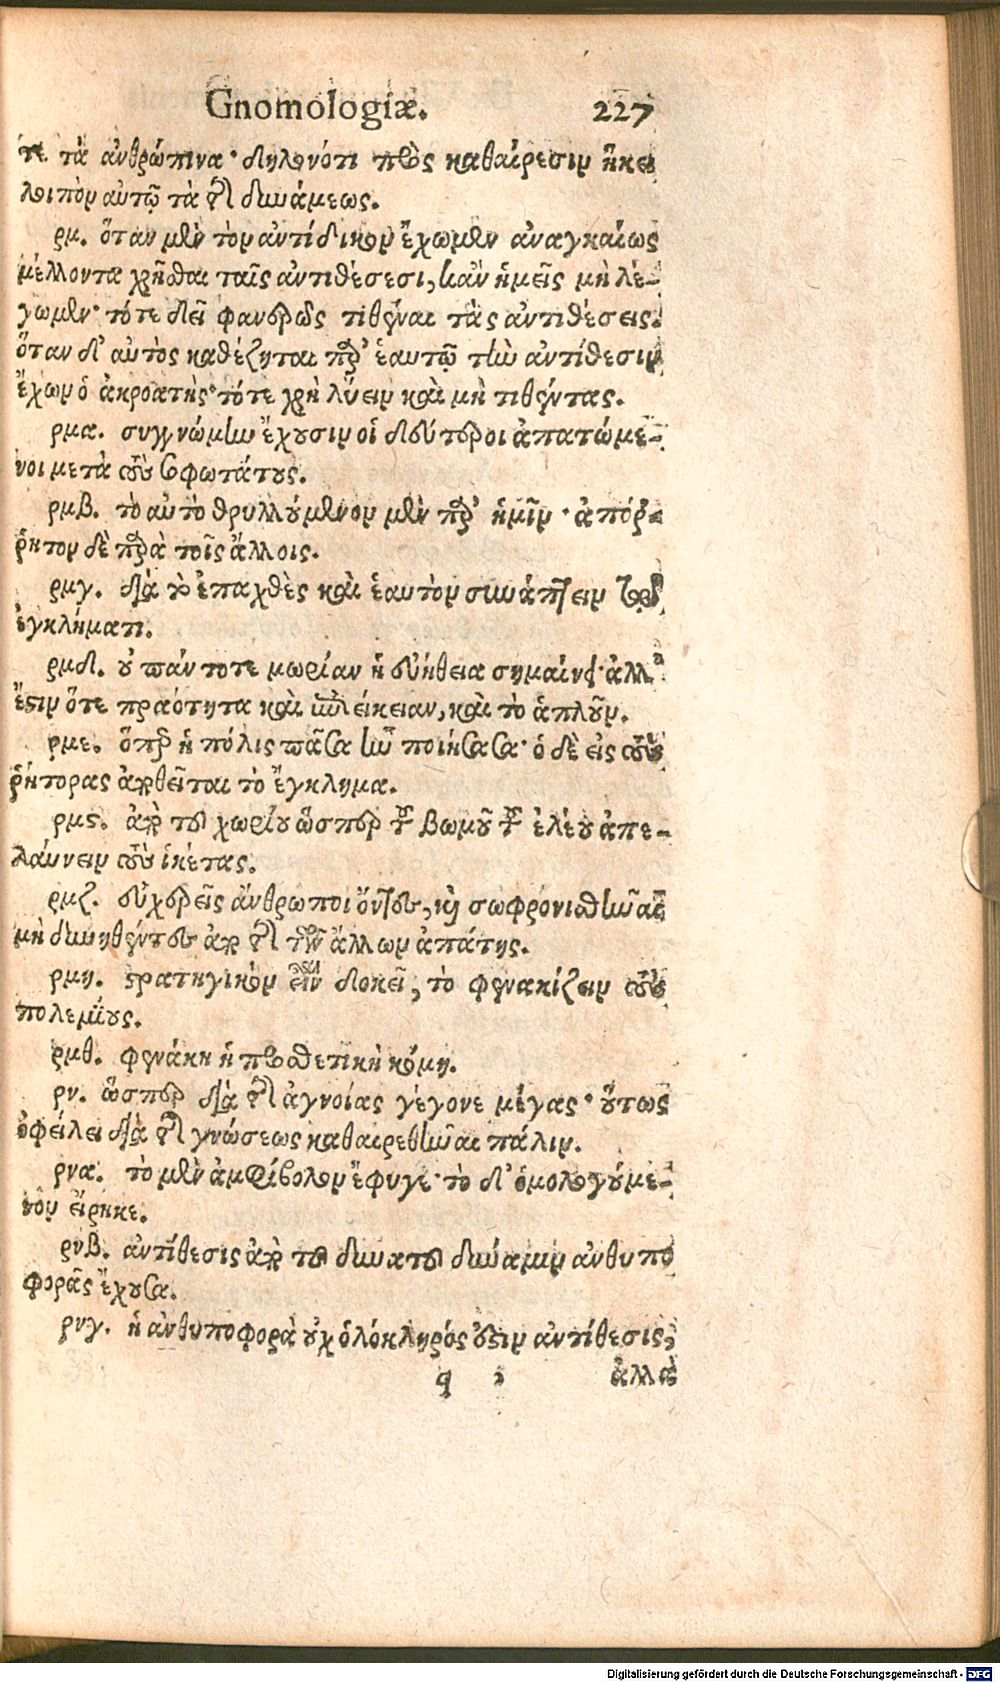 Gnomologiæ. 227
τε τὰ ἀνθρώπινα· δηλονότι πρὸς καθαίρεσιν ἥκει
λοιπὸν αὐτῷ τὰ τῆς δυνάμεως.
ρμ. ὅταν μὲν τὸν ἀντίδικον ἔχωμεν ἀναγκαίως
μέλλοντα χρῆσθαι ταῖς ἀντιθέσεσι, κἂν ἡμεῖς μὴ λέ-
γωμεν· τότε δεῖ φανερῶς τιθέναι τὰς ἀντιθέσεις.
ὅταν δ' αὐτὸς καθέζηται παρ' ἑαυτῷ τὴν ἀντίθεσιν
ἔχων ὁ ἀκροατής· τότε χρὴ λύειν καὶ μὴ τιθέντας.
ρμα. συγγνώμην ἔχουσιν οἱ δεύτεροι ἀπατώμε-
νοι μετὰ τοὺς σοφωτάτους.
ρμβ. τὸ αὐτὸ θρυλλούμενον μὲν παρ' ἡμῖν· ἀπόρ-
ῥητον δὲ παρὰ τοῖς ἄλλοις.
ρμγ. διὰ τὸ ἐπαχθὲς καὶ ἑαυτὸν συνάπτειν τῷ
ἐγκλήματι.
ρμδ. οὐ πάντοτε μωρίαν ἡ εὐήθεια σημαίνει· ἀλλ'
ἔστιν ὅτε πραότητα καὶ ἐπιείκειαν, καὶ τὸ ἁπλοῦν.
ρμε. ὅπερ ἡ πόλις πᾶσα ἦν ποιήσασα· ὁ δὲ εἰς τοὺς
ῥήτορας ἀρθεῖται τὸ ἔγκλημα.
ρμς. ἀπὸ τοῦ χωρίου ὥσπερ τοῦ βωμοῦ τοῦ ἐλέου ἀπε-
λαύνειν τοὺς ἱκέτας.
ρμζ. εὐχερεῖς ἄνθρωποι ὄντες, καὶ σωφρονισθῆναι
μὴ δυνηθέντες ἀπὸ τῆς τῶν ἄλλων ἀπάτης.
ρμη. στρατηγικὸν εἶναι δοκεῖ, τὸ φενακίζειν τοὺς
πολεμίους.
ρμθ. φενάκη ἡ προσθετικὴ κόμη.
ρν. ὥσπερ διὰ τῆς ἀγνοίας γέγονε μέγας· οὕτως
ὀφείλει διὰ τῆς γνώσεως καθαιρεθῆναι πάλιν.
ρνα. τὸ μὲν ἀμφίβολον ἔφυγε· τὸ δ' ὁμολογούμε-
νον εἴρηκε.
ρνβ. ἀντίθεσις ἀπὸ τοῦ δυνατοῦ δύναμιν ἀνθυπο
φορᾶς ἔχουσα.
ρνγ. ἡ ἀνθυποφορὰ οὐχ ὁλόκληρός ἐστιν ἀντίθεσις,
q 2 ἀλλὰ
Digitalisierung gefördert durch die Deutsche Forschungsgemeinschaft - DFG